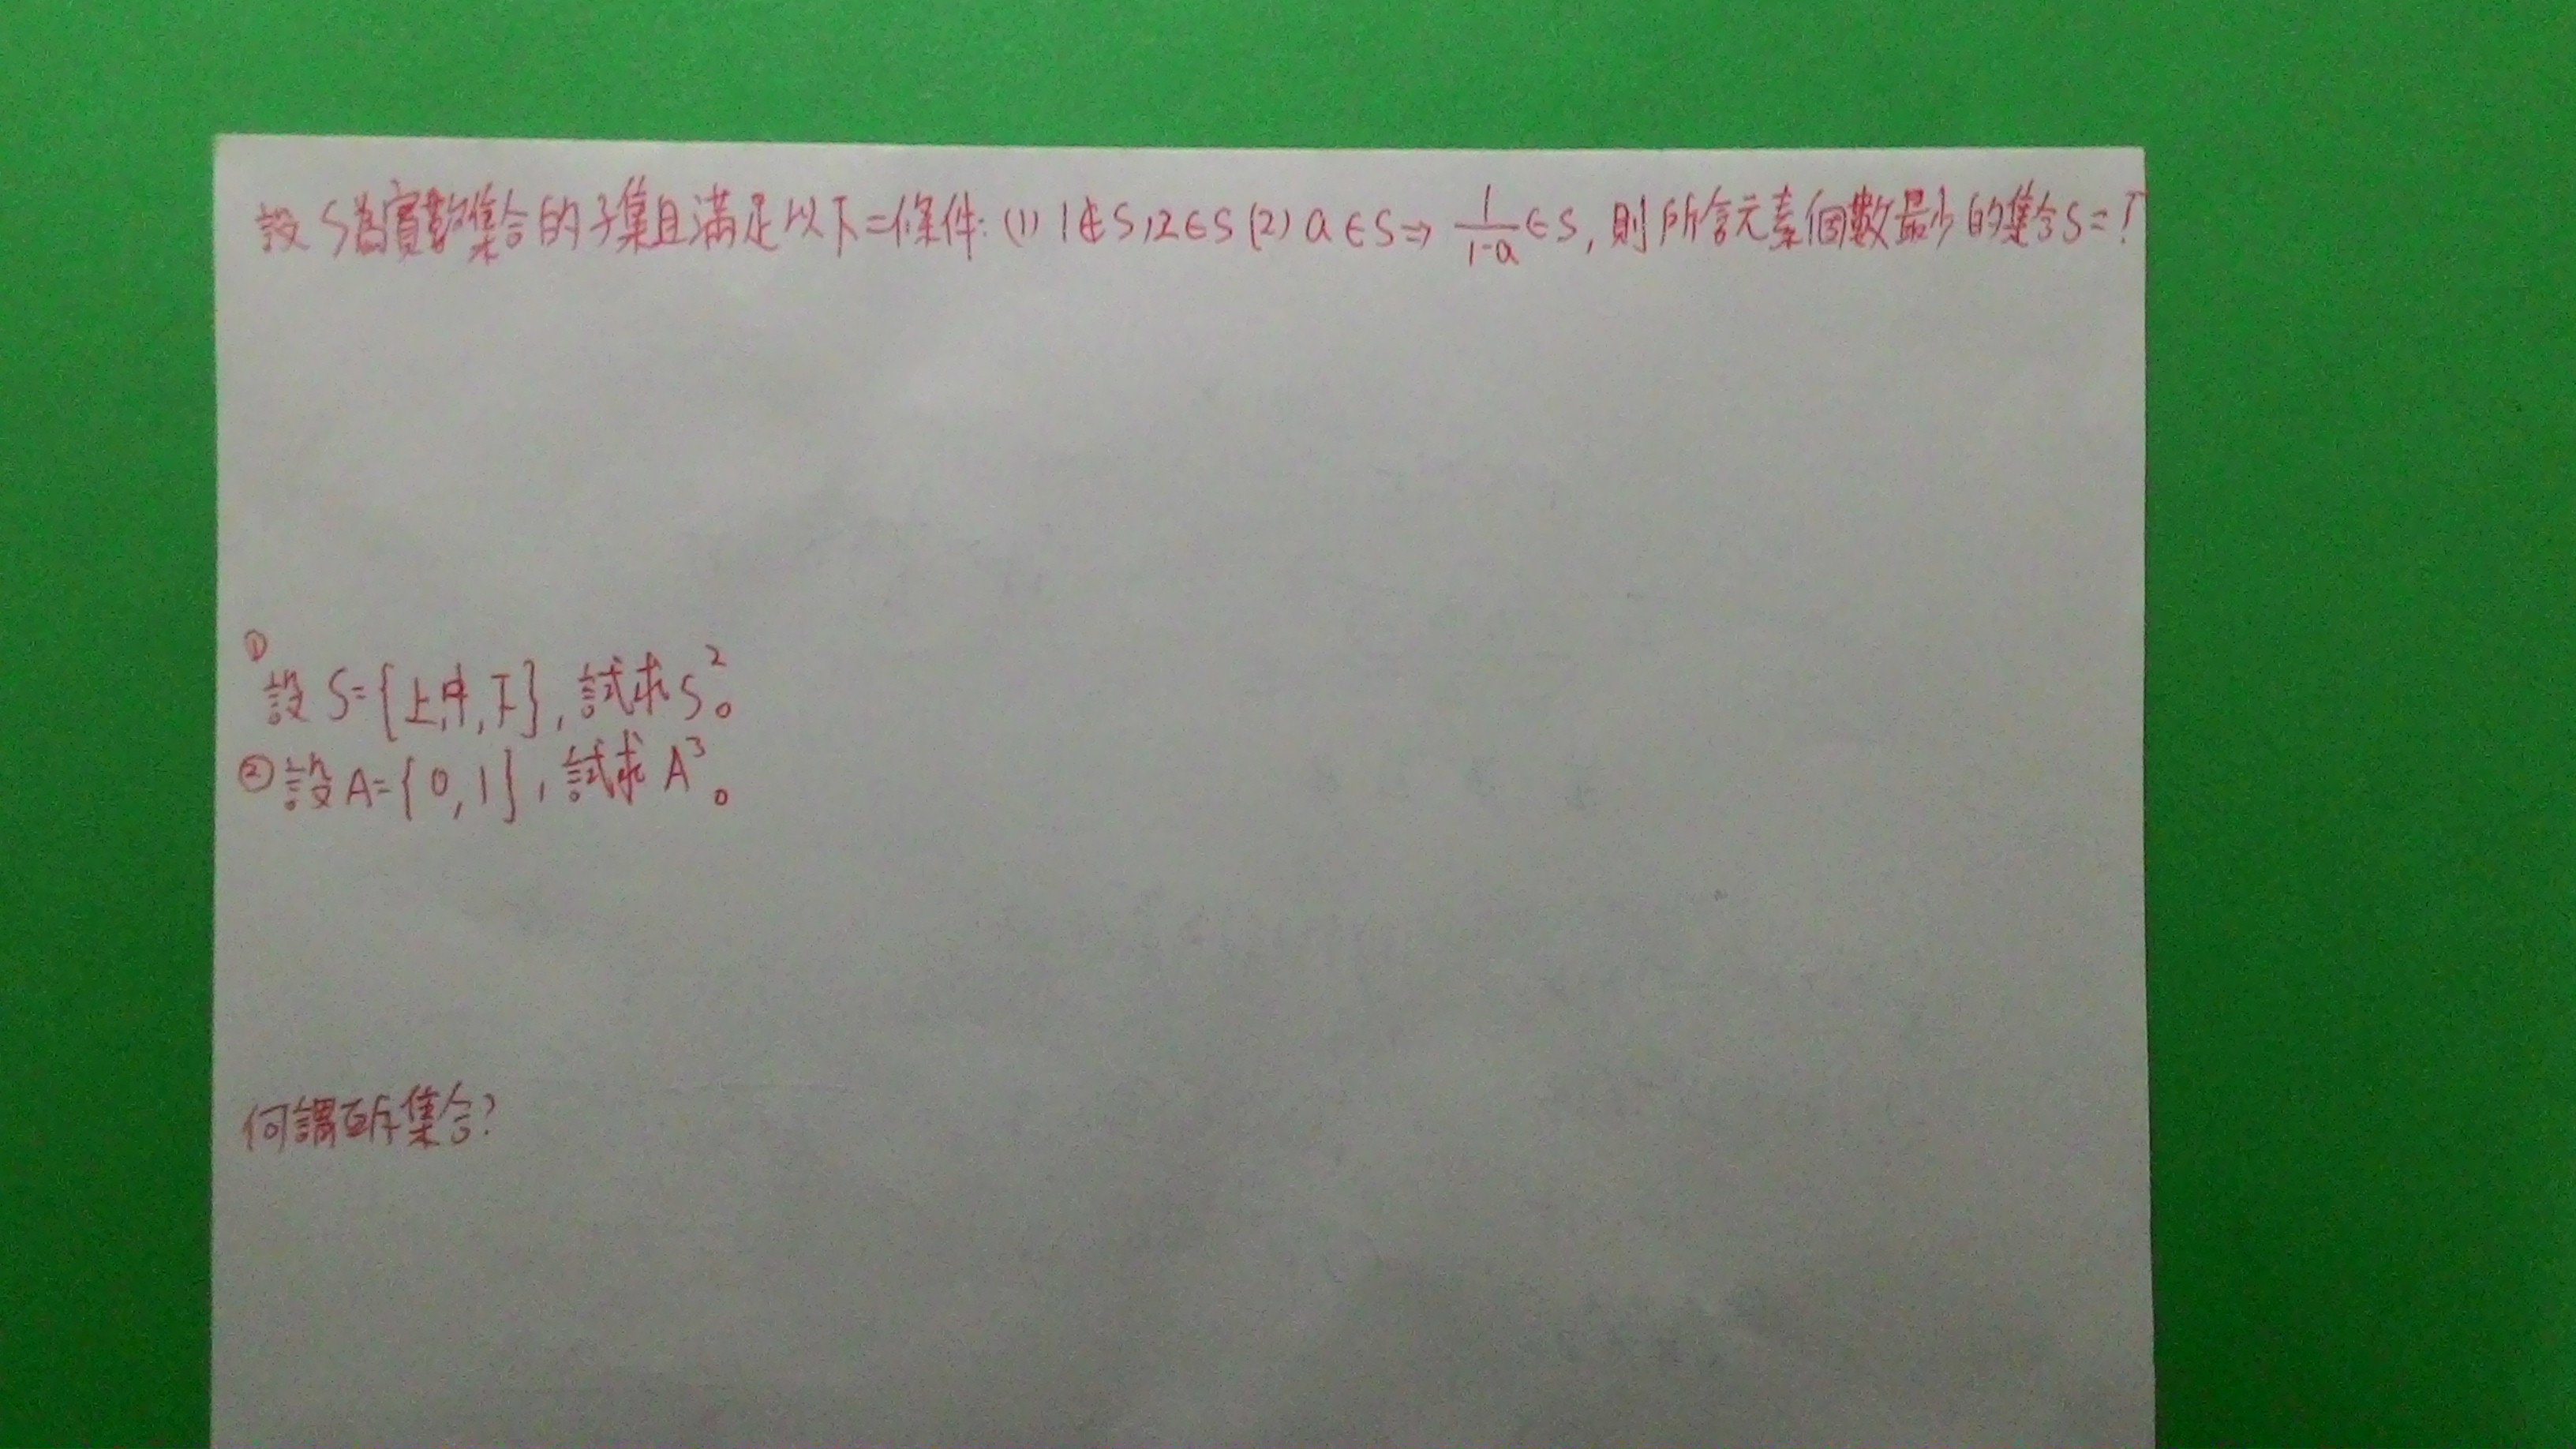 設S為實數集合的子集且滿足以下二條件:(1) 1∉S,2∈S (2) a∈S⇒ 1/(1-a) ∈S, 則所含元素個數最少的集合S=?
①
設S={上,中,下},試求S²。
②設A={0,1},試求A³。
何謂互斥集合?